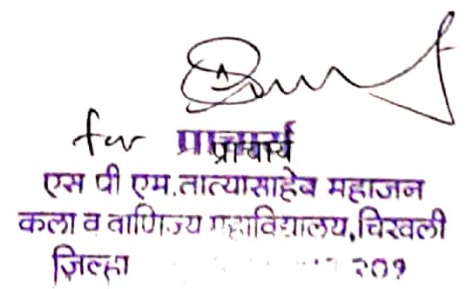 for प्राचार्य
एस पी एम.तात्यासाहेब महाजन
कला व वाणिज्य महाविद्यालय,चिखली
जिल्हा